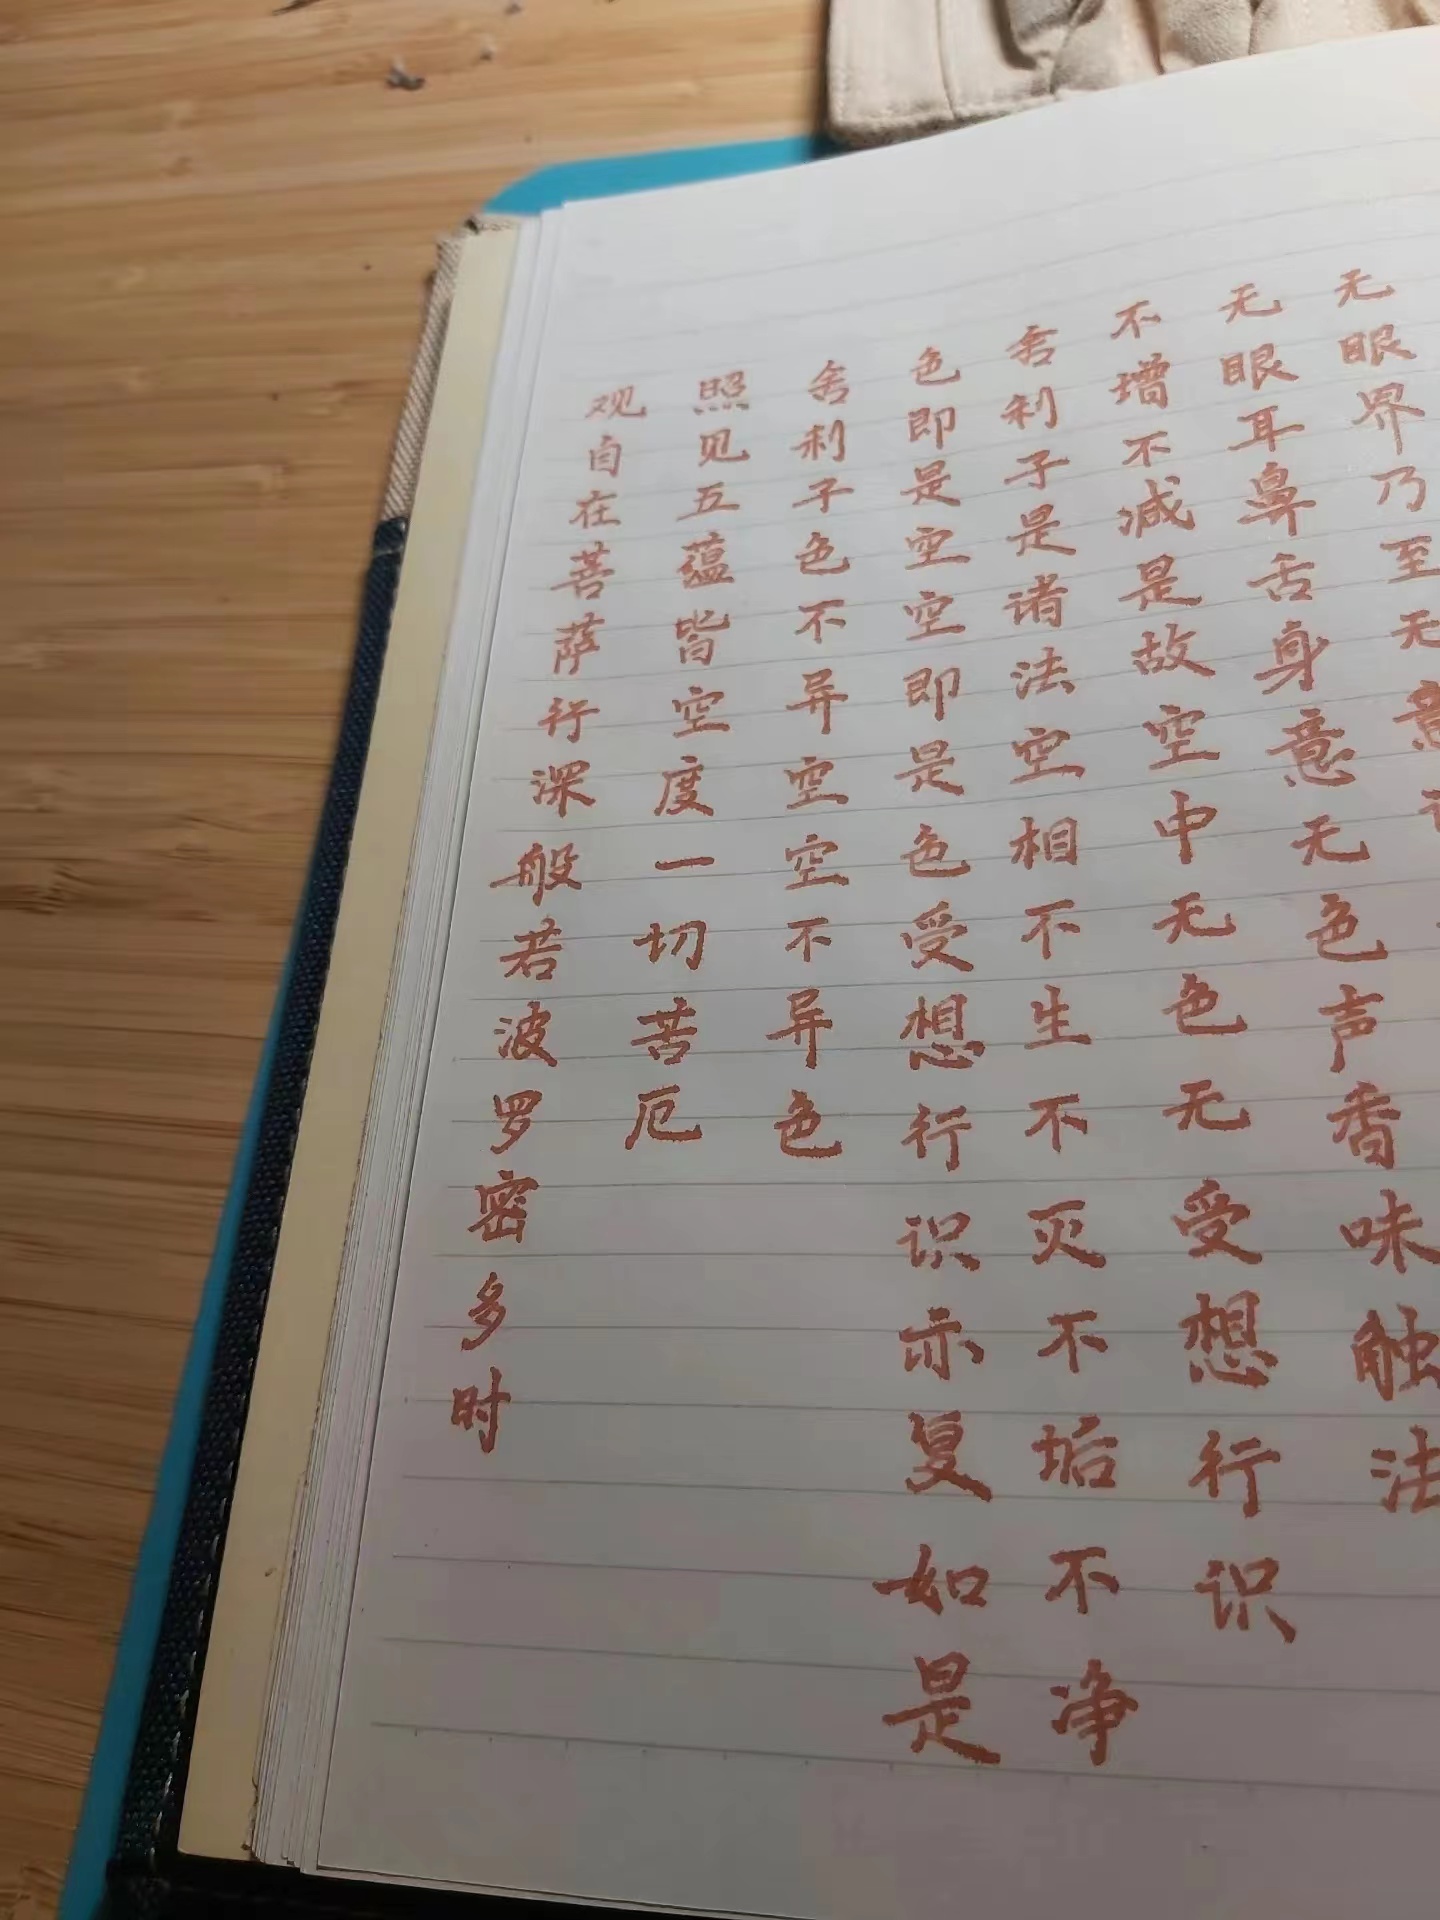 观自在菩萨行深般若波罗密多时
照见五蕴皆空度一切苦厄
舍利子色不异空空不异色
色即是空空即是色受想行识亦复如是
舍利子是诸法空相不生不灭不垢不净
不增不减是故空中无色无受想行识
无眼耳鼻舌身意无色声香味触法
无眼界乃至无意